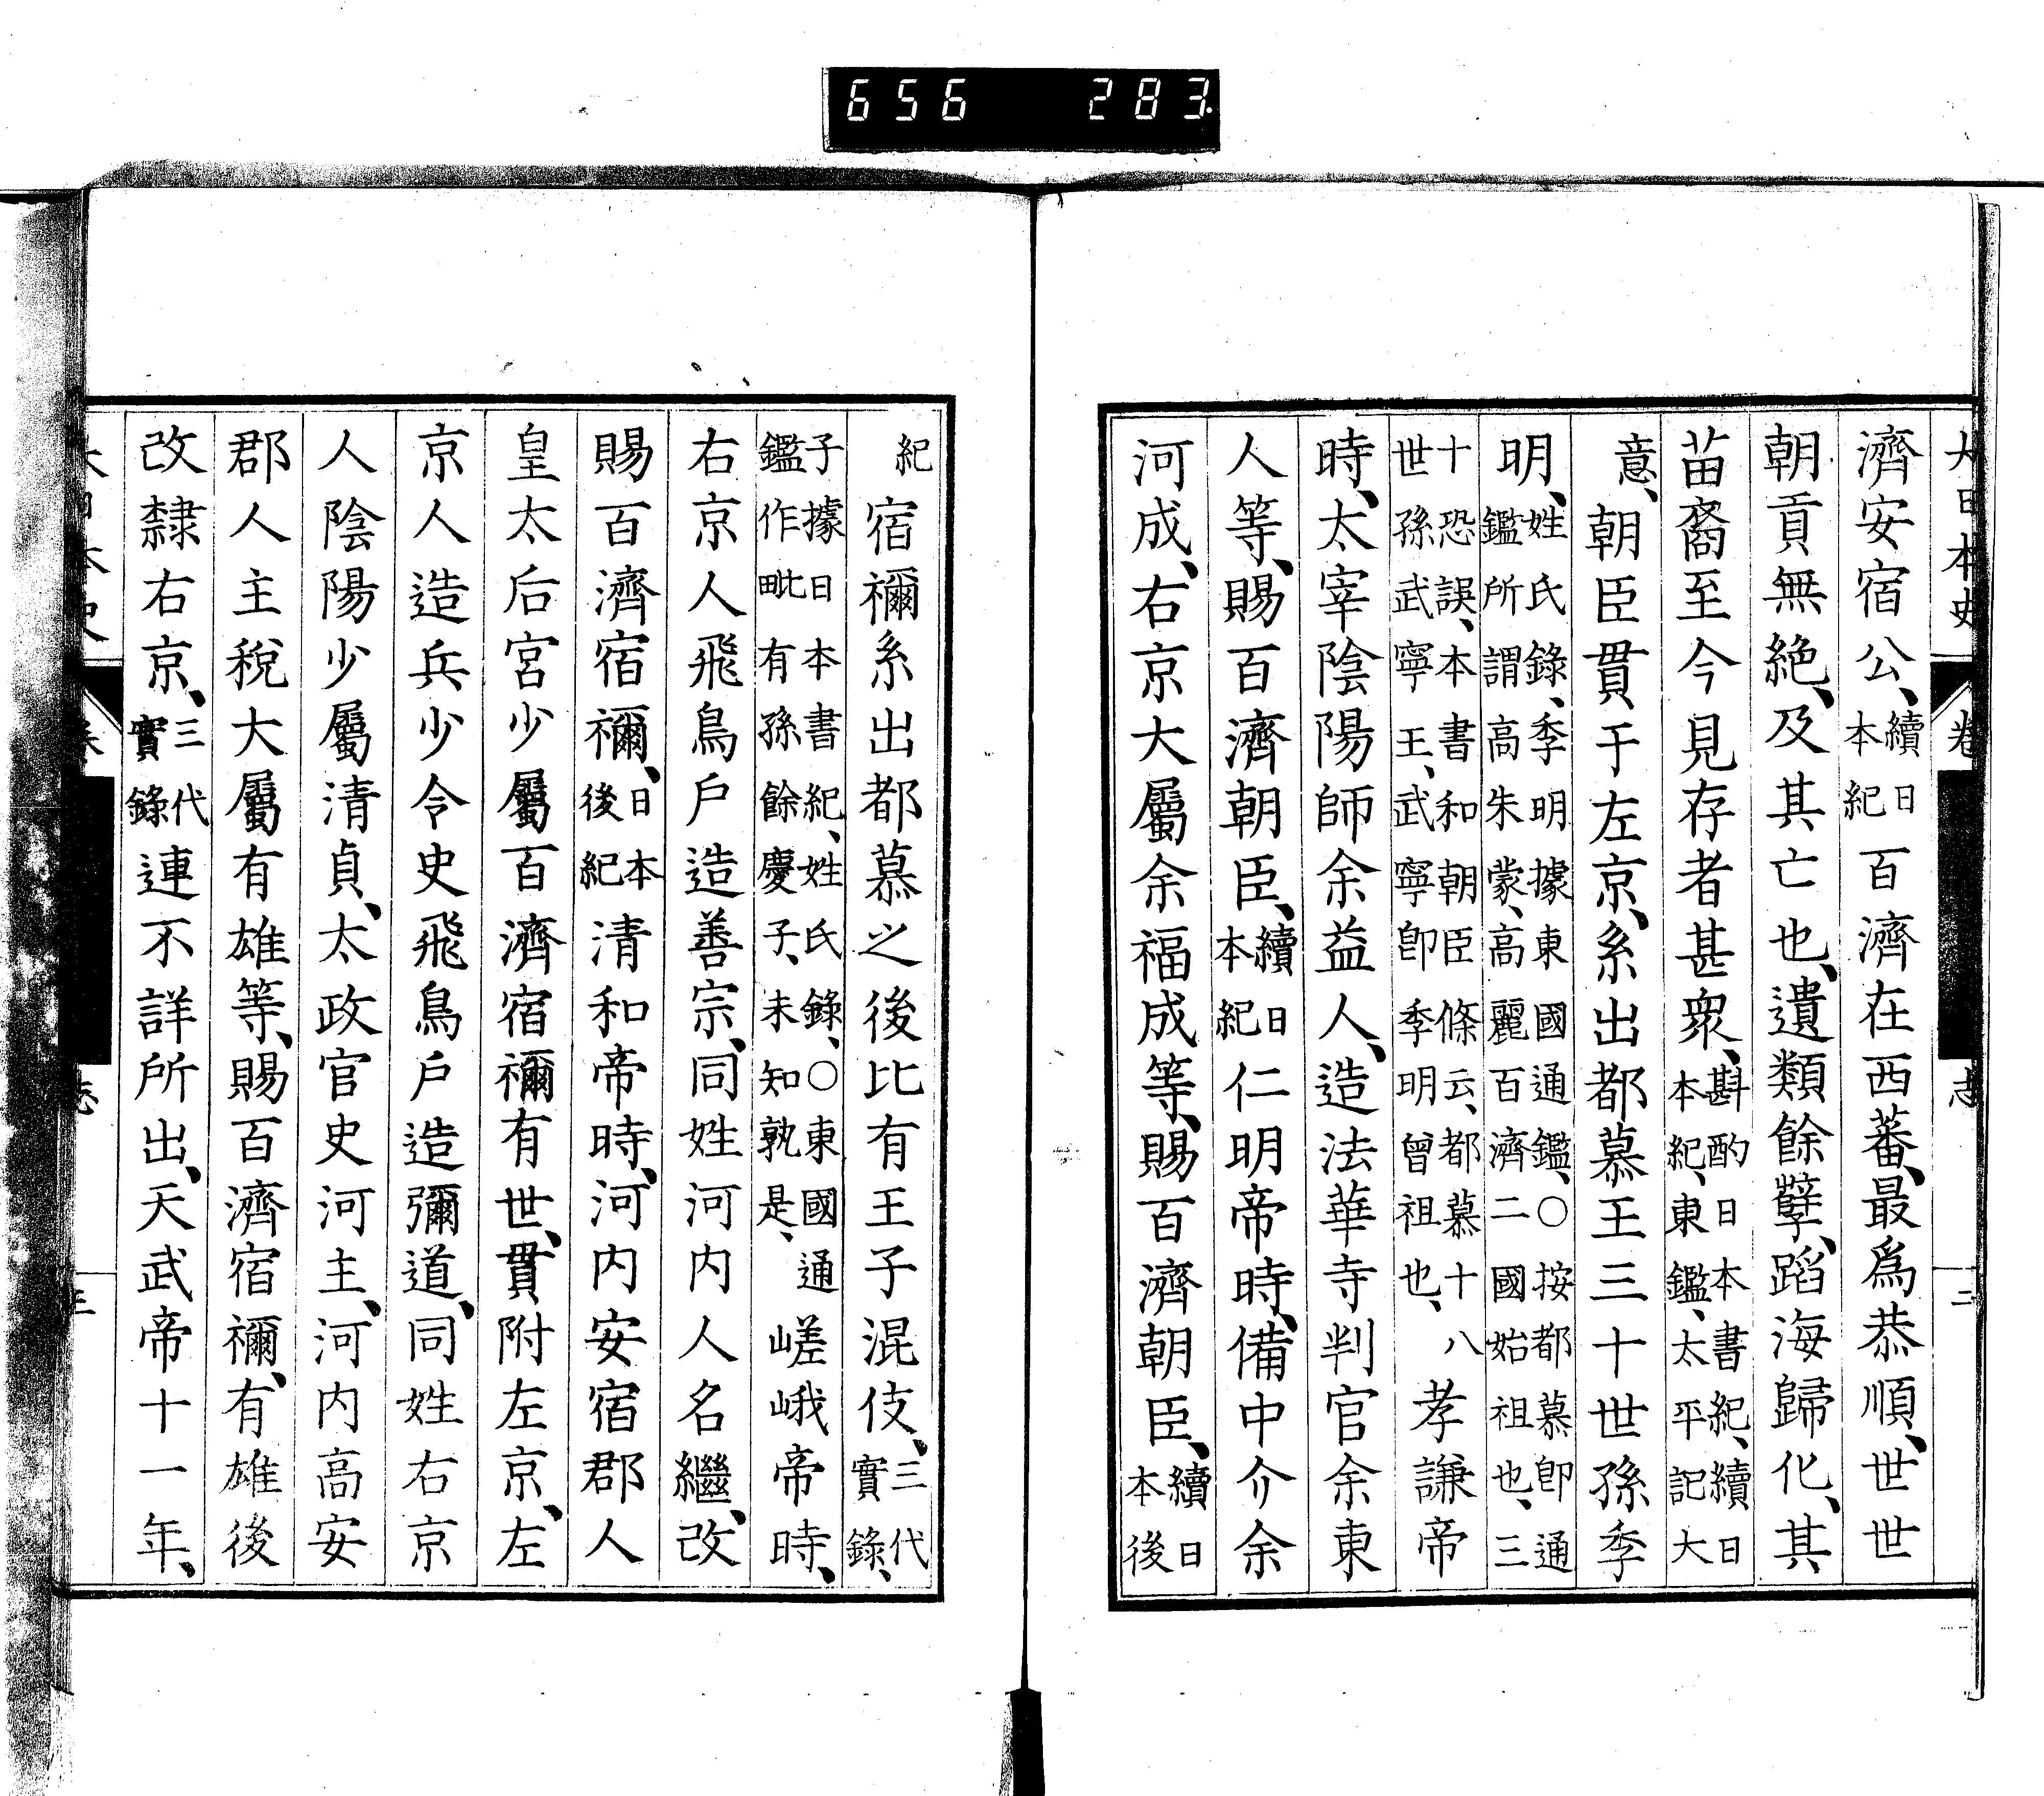 656 283
大日本史 卷 志 二
濟安宿公、續日本紀百濟在西蕃、最爲恭順、世世
朝貢無絶、及其亡也、遺類餘孽、蹈海歸化、其
苗裔至今見存者甚衆、斟酌日本書紀、續日本紀、東鑑、太平記大
意、朝臣貫于左京、系出都慕王三十世孫季
明、姓氏錄、季明據東國通鑑、○按都慕卽通鑑所謂高朱蒙、高麗百濟二國始祖也、三
十恐誤、本書和朝臣條云、都慕十八世孫武寧王、武寧卽季明曾祖也、孝謙帝
時、太宰陰陽師余益人、造法華寺判官余東
人等、賜百濟朝臣、續日本紀仁明帝時、備中介余
河成、右京大屬余福成等、賜百濟朝臣、續日本後
紀宿禰系出都慕之後比有王子混伎、三代實錄、
子據日本書紀、姓氏錄、○東國通鑑作毗有孫餘慶子、未知孰是、嵯峨帝時、
右京人飛鳥戶造善宗、同姓河内人名繼、改
賜百濟宿禰、日本後紀清和帝時、河内安宿郡人
皇太后宮少屬百濟宿禰有世、貫附左京、左
京人造兵少令史飛鳥戶造彌道、同姓右京
人陰陽少屬清貞、太政官史河主、河内高安
郡人主稅大屬有雄等、賜百濟宿禰、有雄後
改隸右京、三代實錄連不詳所出、天武帝十一年、